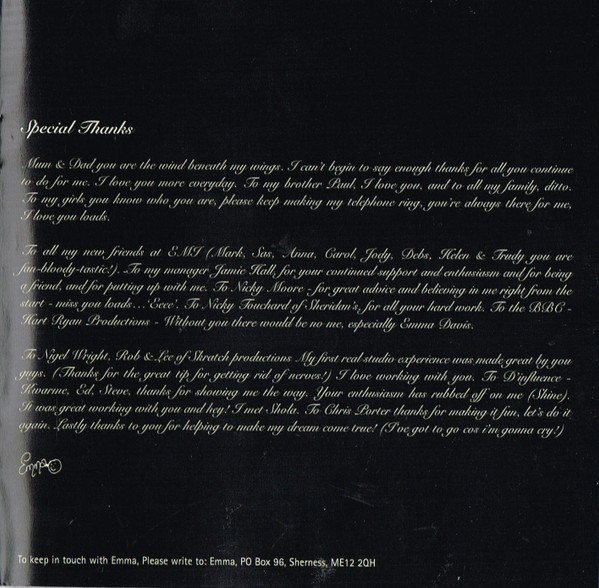 Special Thanks
Mum & Dad you are the wind beneath my wings. I can't begin to say enough thanks for all you continue
to do for me. I love you more everyday. To my brother Paul, I love you, and to all my family, ditto.
To my girls you know who you are, please keep making my telephone ring, you're always there for me,
I love you loads.
To all my new friends at EMI (Mark, Sas, Anna, Carol, Jody, Debs, Helen & Trudy you are
fan-bloody-tastic!). To my manager Jamie Hall, for your continued support and enthusiasm and for being
a friend, and for putting up with me. To Nicky Moore - for great advice and believing in me right from the
start - miss you loads...'Eece'. To Nicky Touchard of Sheridan's, for all your hard work. To the BBC -
Hart Ryan Productions - Without you there would be no me, especially Emma Davis.
To Nigel Wright, Rob & Lee of Skratch productions My first real studio experience was made great by you
guys. (Thanks for the great tip for getting rid of nerves!) I love working with you. To D'influence -
Kwarme, Ed, Steve, thanks for showing me the way. Your enthusiasm has rubbed off on me (Shine).
It was great working with you and hey! I met Shola. To Chris Porter thanks for making it fun, let's do it
again. Lastly thanks to you for helping to make my dream come true! (I've got to go cos i'm gonna cry!)
Emma
To keep in touch with Emma, Please write to: Emma, PO Box 96, Sherness, ME12 2QH